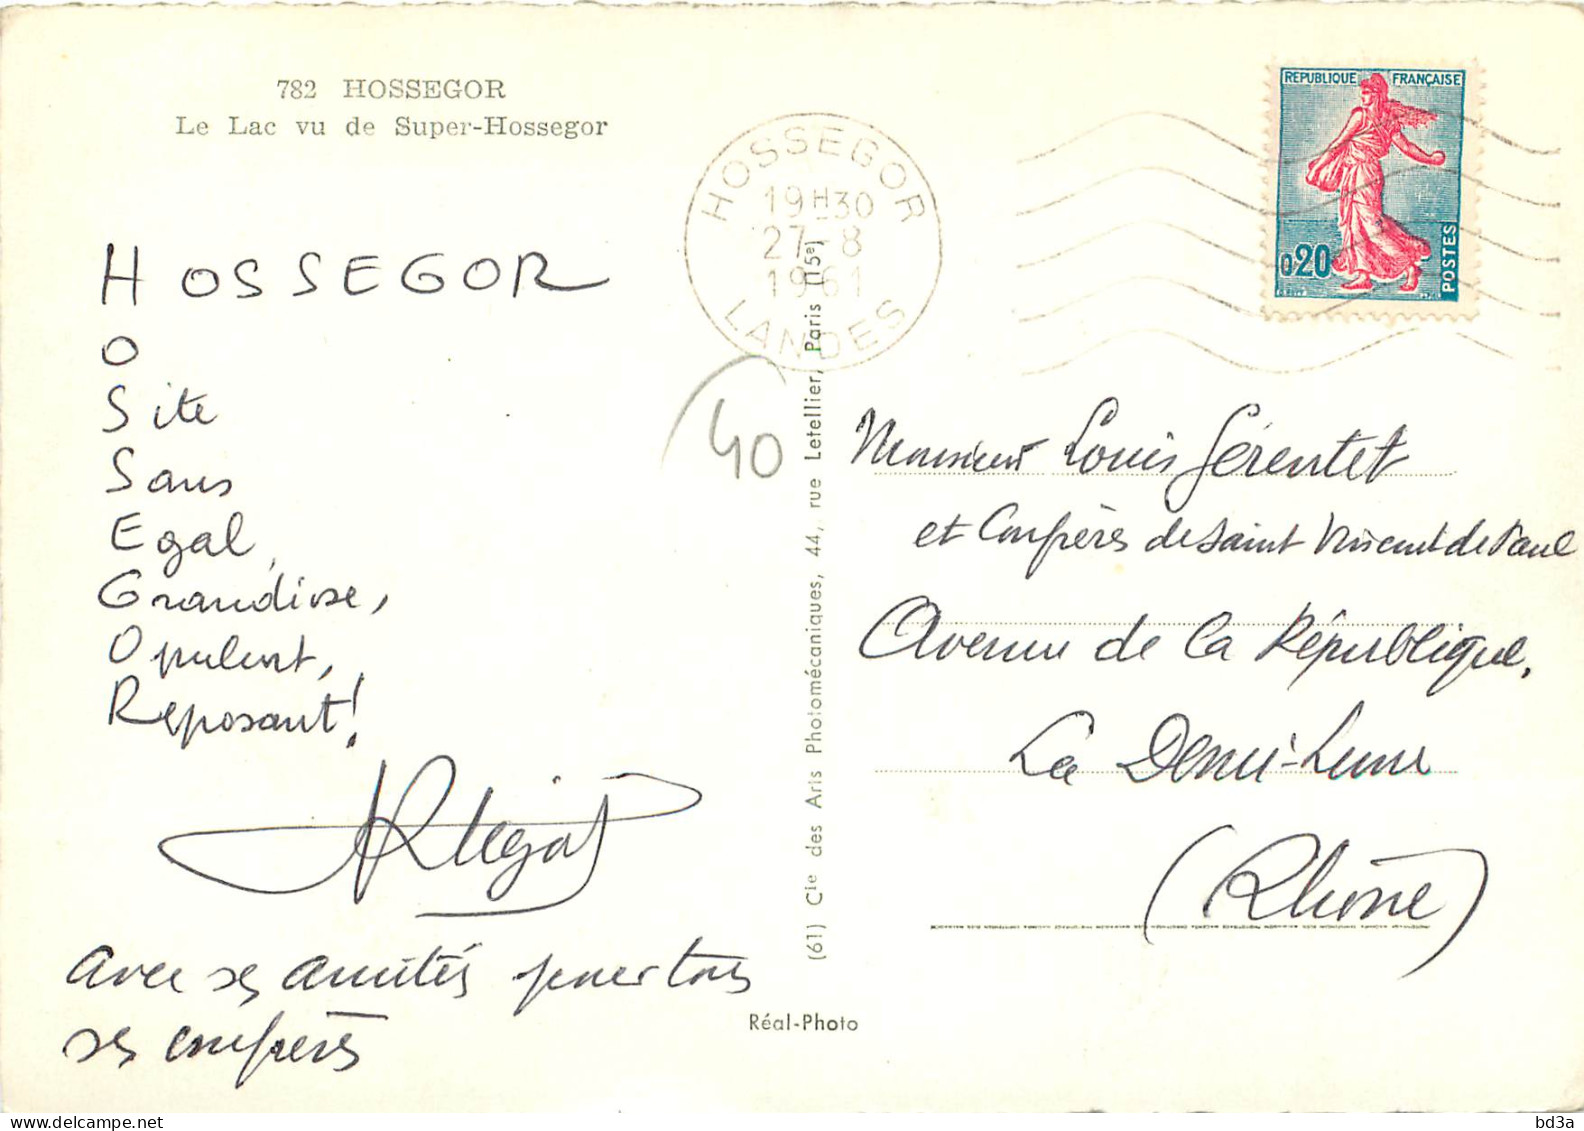 782 HOSSEGOR
Le Lac vu de Super-Hossegor
HOSSEGOR
19H30
27-8
1961
LANDES
REPUBLIQUE FRANÇAISE
0,20
POSTES
HOSSEGOR
O
Site
Sans
Egal,
Grandiose,
Opulent,
Reposant!
avec ses amitiés pour tous
ses confrères
40
(61) Cie des Arts Photomécaniques, 44, rue Letellier, Paris (15e)
Réal-Photo
Monsieur Louis Gérentet
et Confrères de Saint Vincent de Paul
Avenue de la République,
La Demi-Lune
(Rhône)
delcampe.net
bd3a